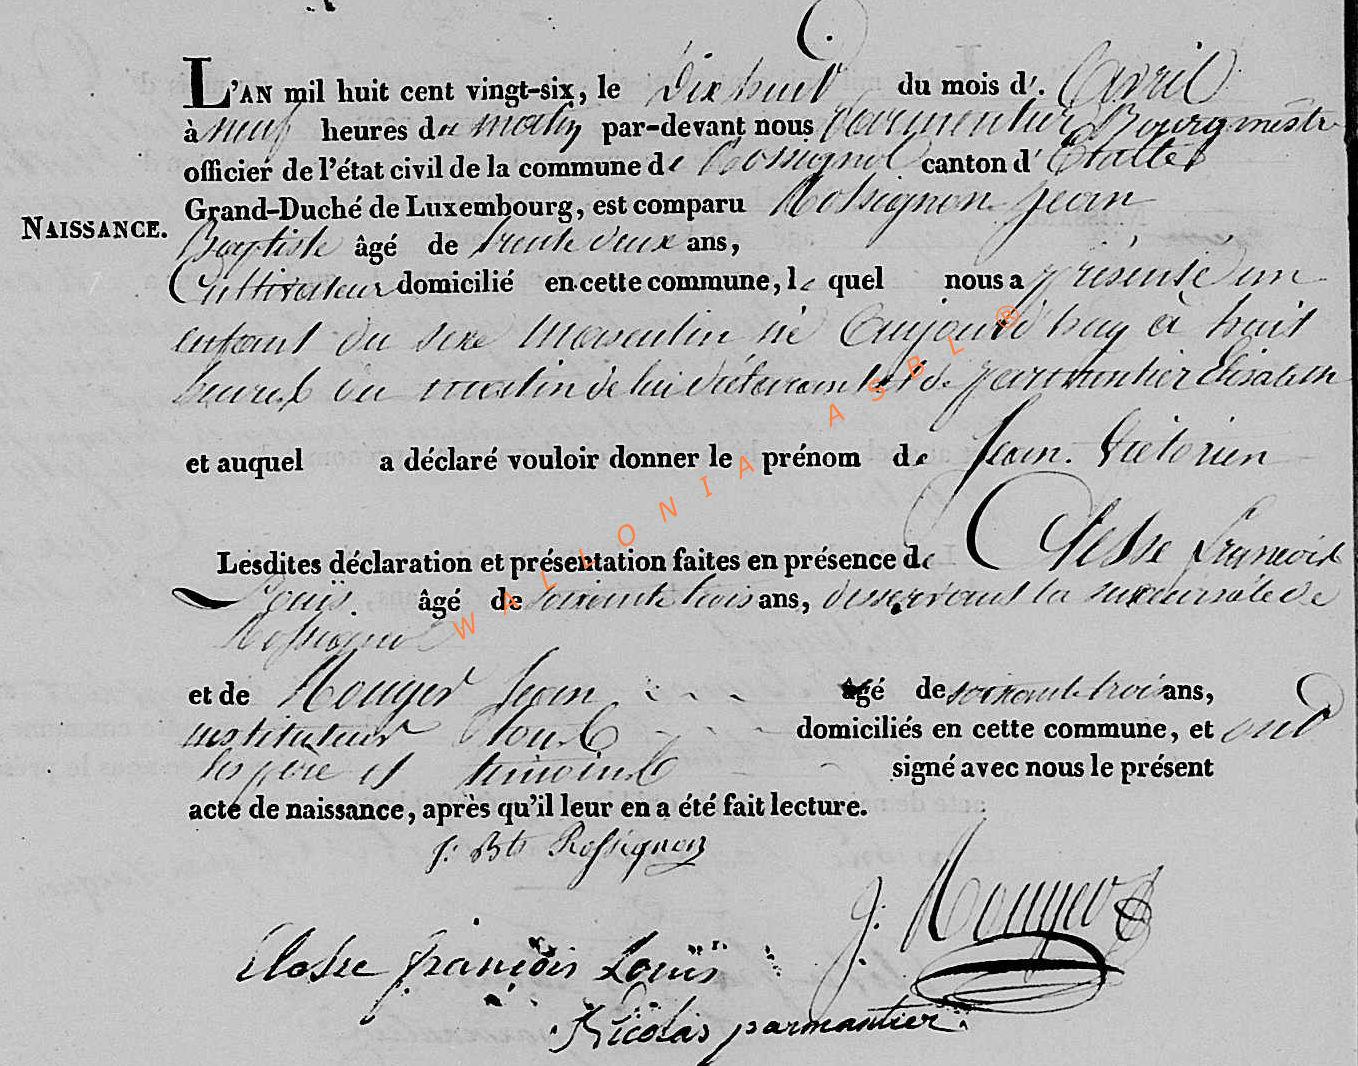 L'AN mil huit cent vingt-six, le Dix huit du mois d'. Avril
à neuf heures du matin par-devant nous parmentier Bourgmestre
officier de l'état civil de la commune de Rossignol canton d' Etalle
Grand-Duché de Luxembourg, est comparu Rossignon jean
NAISSANCE.
Baptiste âgé de trente deux ans,
Cultivateur domicilié en cette commune, le quel nous a présenté un
enfant du sexe Masculin né Aujourd'huy à huit
heures du matin de lui déclarant et de parmentier Elisabeth
et auquel a déclaré vouloir donner le prénom de Jean. Victorien
Lesdites déclaration et présentation faites en présence de Closse François
Louïs. âgé de soixante trois ans, desservant la succursale de
Rossignol
et de Rouger Jean âgé de soixante trois ans,
instituteur tous domiciliés en cette commune, et ont
les père et témoins signé avec nous le présent
acte de naissance, après qu'il leur en a été fait lecture.
J: Bte Rossignon
J: Rouger
Closse françois Louïs
Nicolas parmantier
WALLONIA ASBL ®